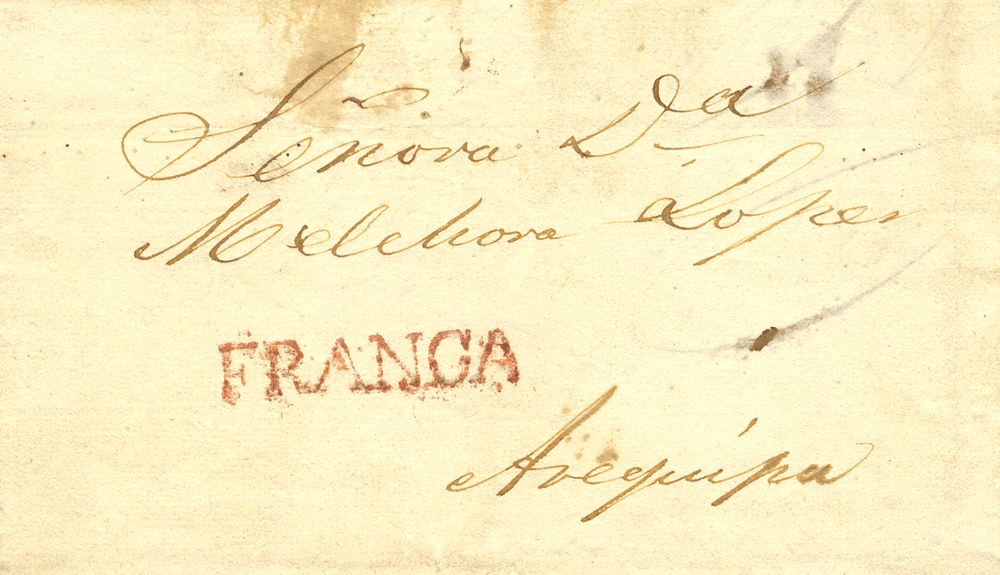 Señora Da
Melchora Lópes
FRANCA
Arequípa